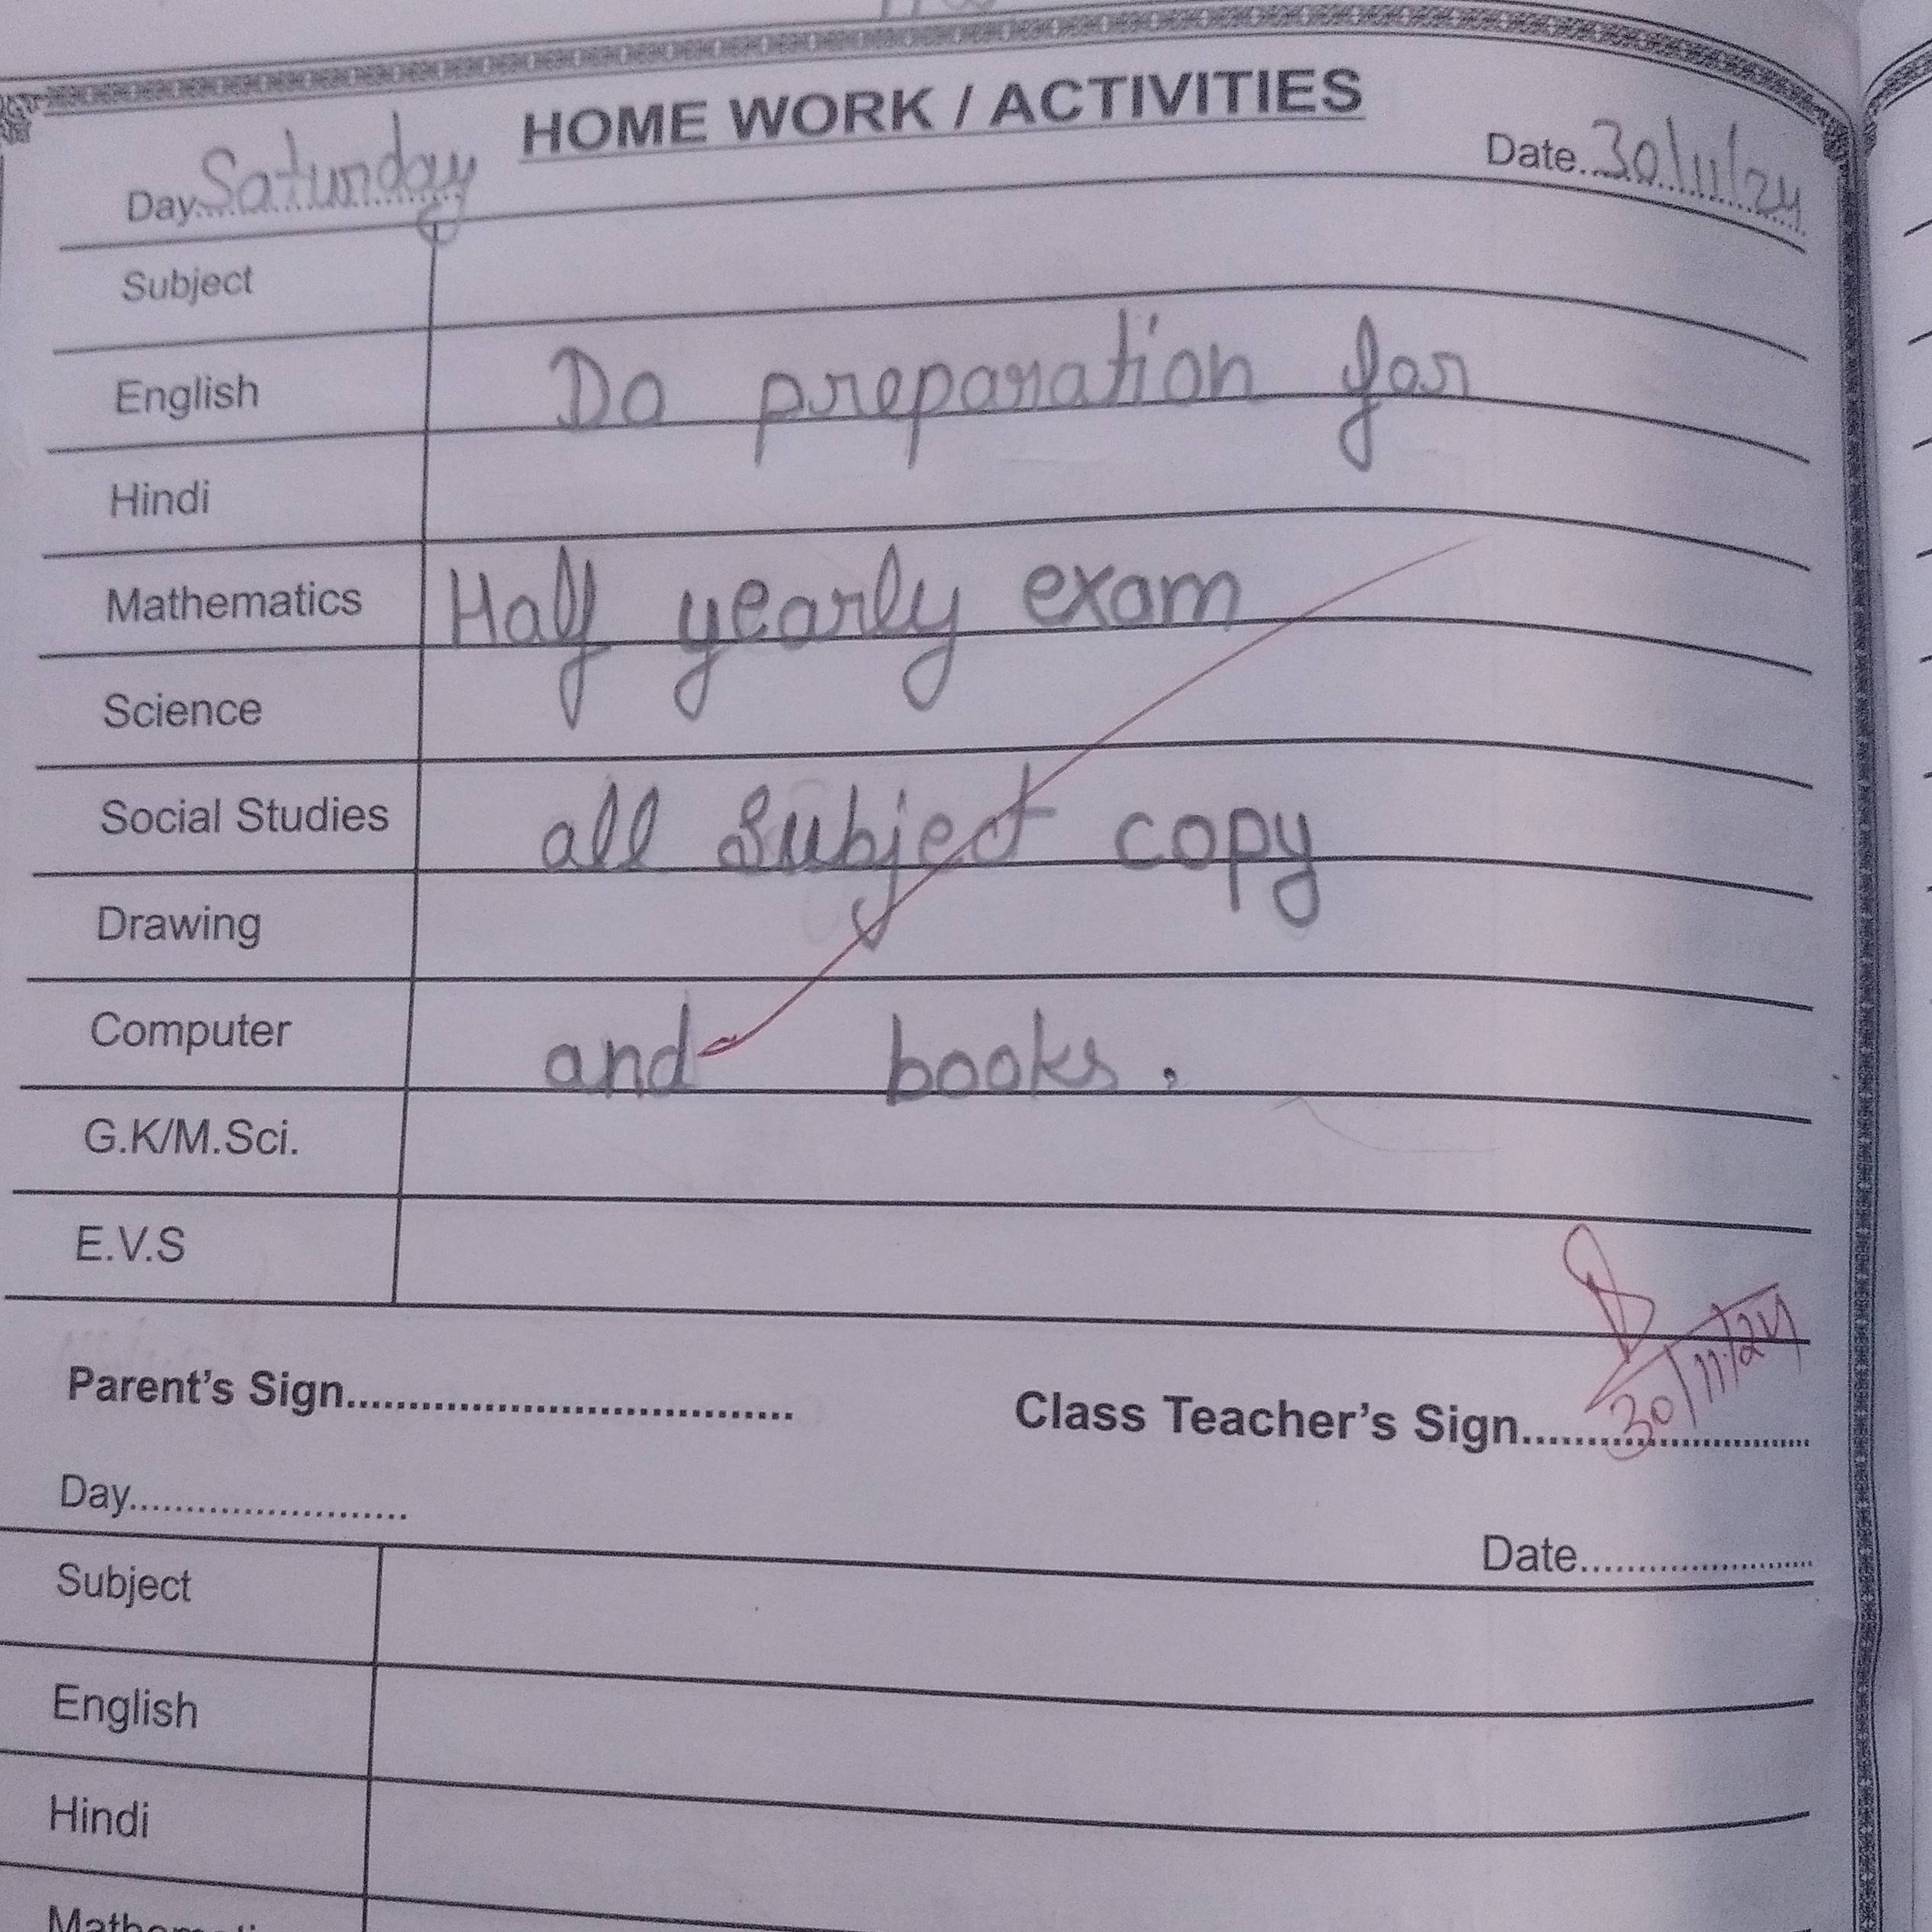 HOME WORK / ACTIVITIES
Day Saturday Date 30/11/24
Subject
English Do preparation for
Hindi
Mathematics Half yearly exam
Science
Social Studies all Subject copy
Drawing
Computer and books.
G.K/M.Sci.
E.V.S
30/11/24
Parent's Sign.................................... Class Teacher's Sign...........................
Day........................
Date........................
Subject
English
Hindi